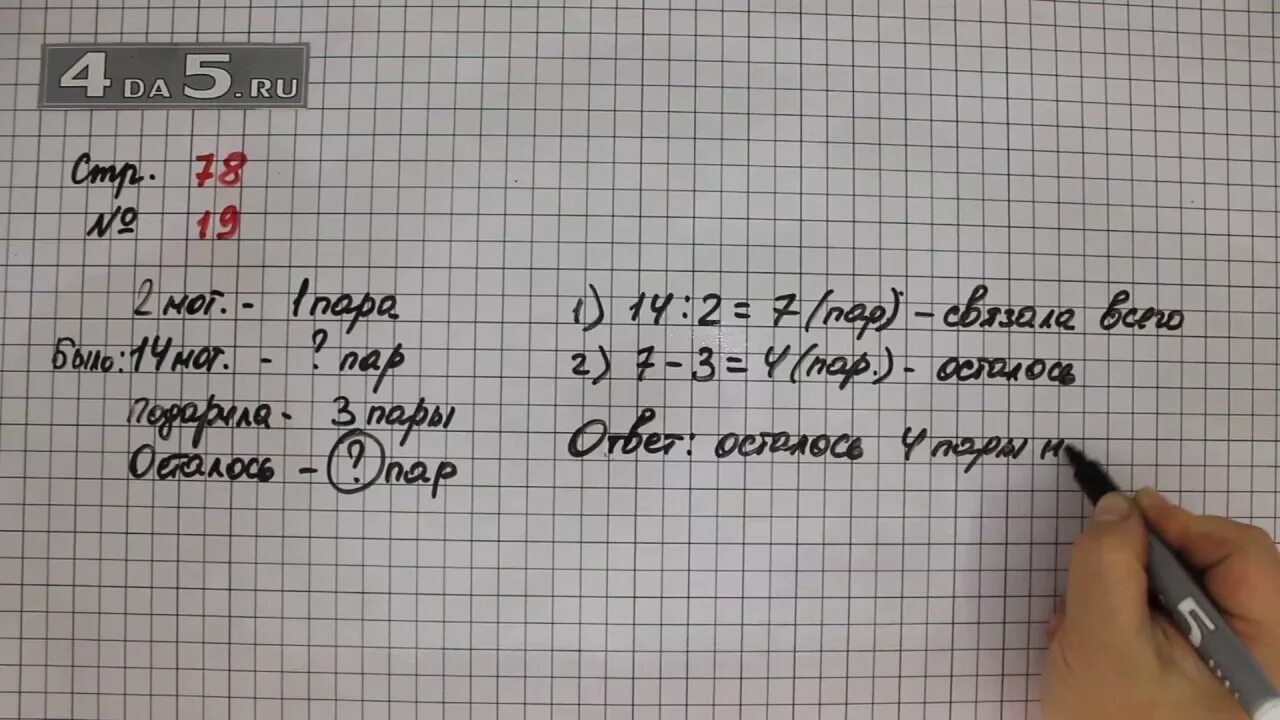 4DA5.RU
Стр. 78
№ 19
2 мот. - 1 пара
Было: 14 мот. - ? пар
Подарила - 3 пары
Осталось - ? пар
1) 14 : 2 = 7 (пар) - связала всего
2) 7 - 3 = 4 (пар.) - осталось
Ответ: осталось 4 пары н
5